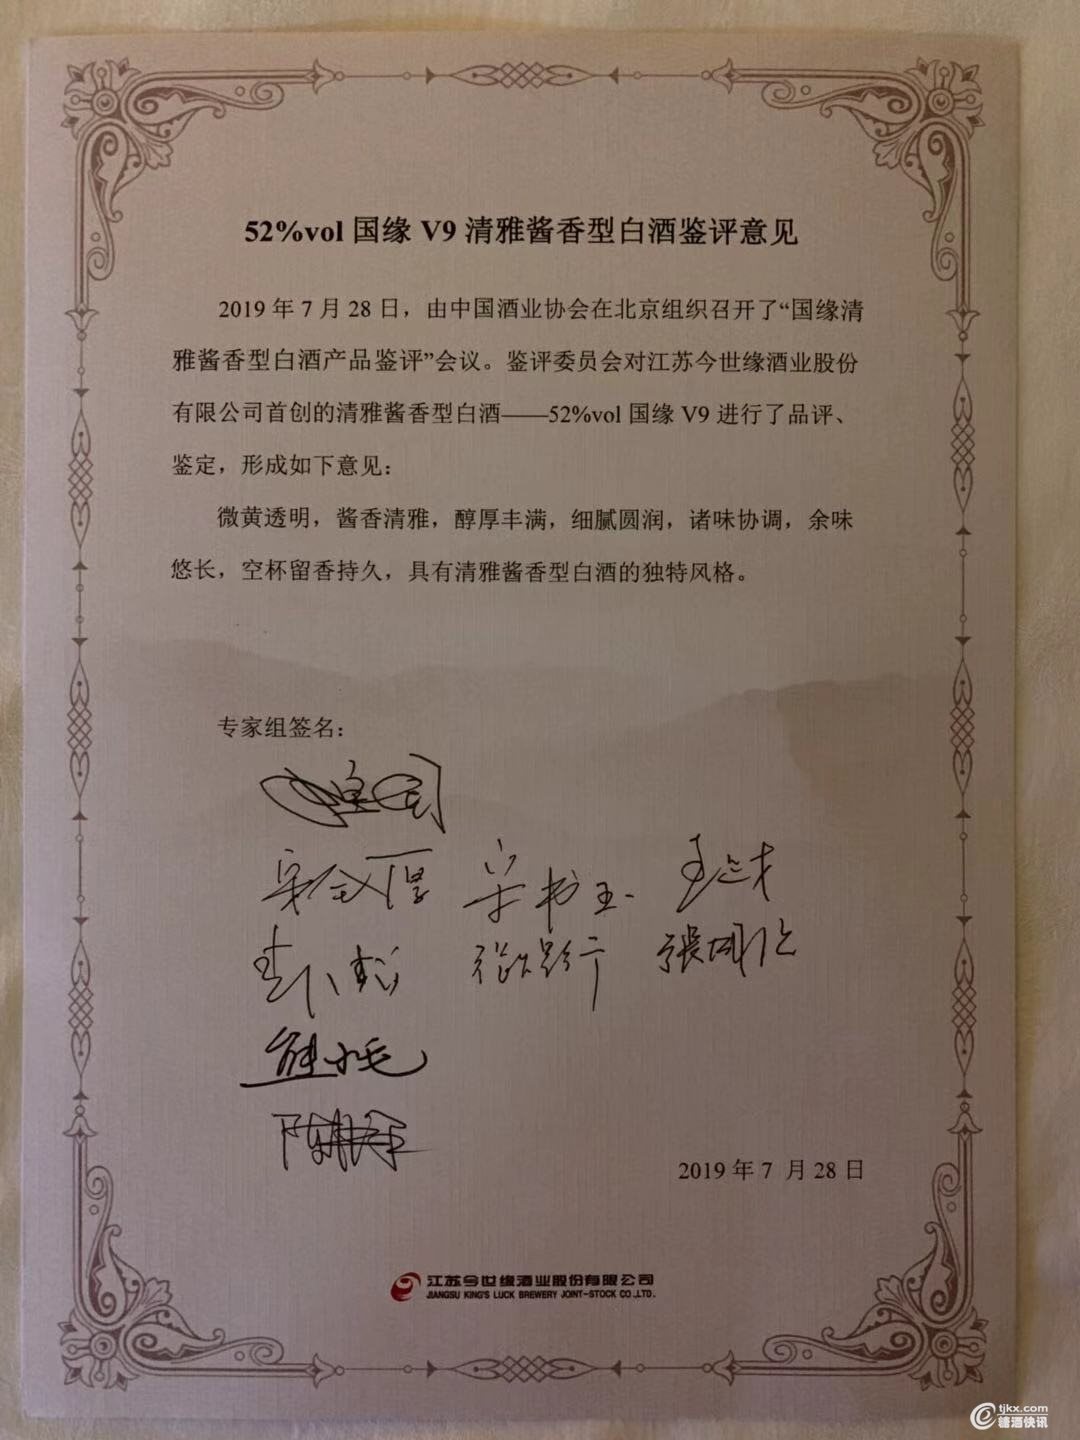 52%vol 国缘 V9 清雅酱香型白酒鉴评意见
2019 年 7 月 28 日，由中国酒业协会在北京组织召开了“国缘清
雅酱香型白酒产品鉴评”会议。鉴评委员会对江苏今世缘酒业股份
有限公司首创的清雅酱香型白酒——52%vol 国缘 V9 进行了品评、
鉴定，形成如下意见：
微黄透明，酱香清雅，醇厚丰满，细腻圆润，诸味协调，余味
悠长，空杯留香持久，具有清雅酱香型白酒的独特风格。
专家组签名：
宋书玉
2019 年 7 月 28 日
江苏今世缘酒业股份有限公司
JIANGSU KING'S LUCK BREWERY JOINT-STOCK CO.,LTD.
tjkx.com
糖酒快讯